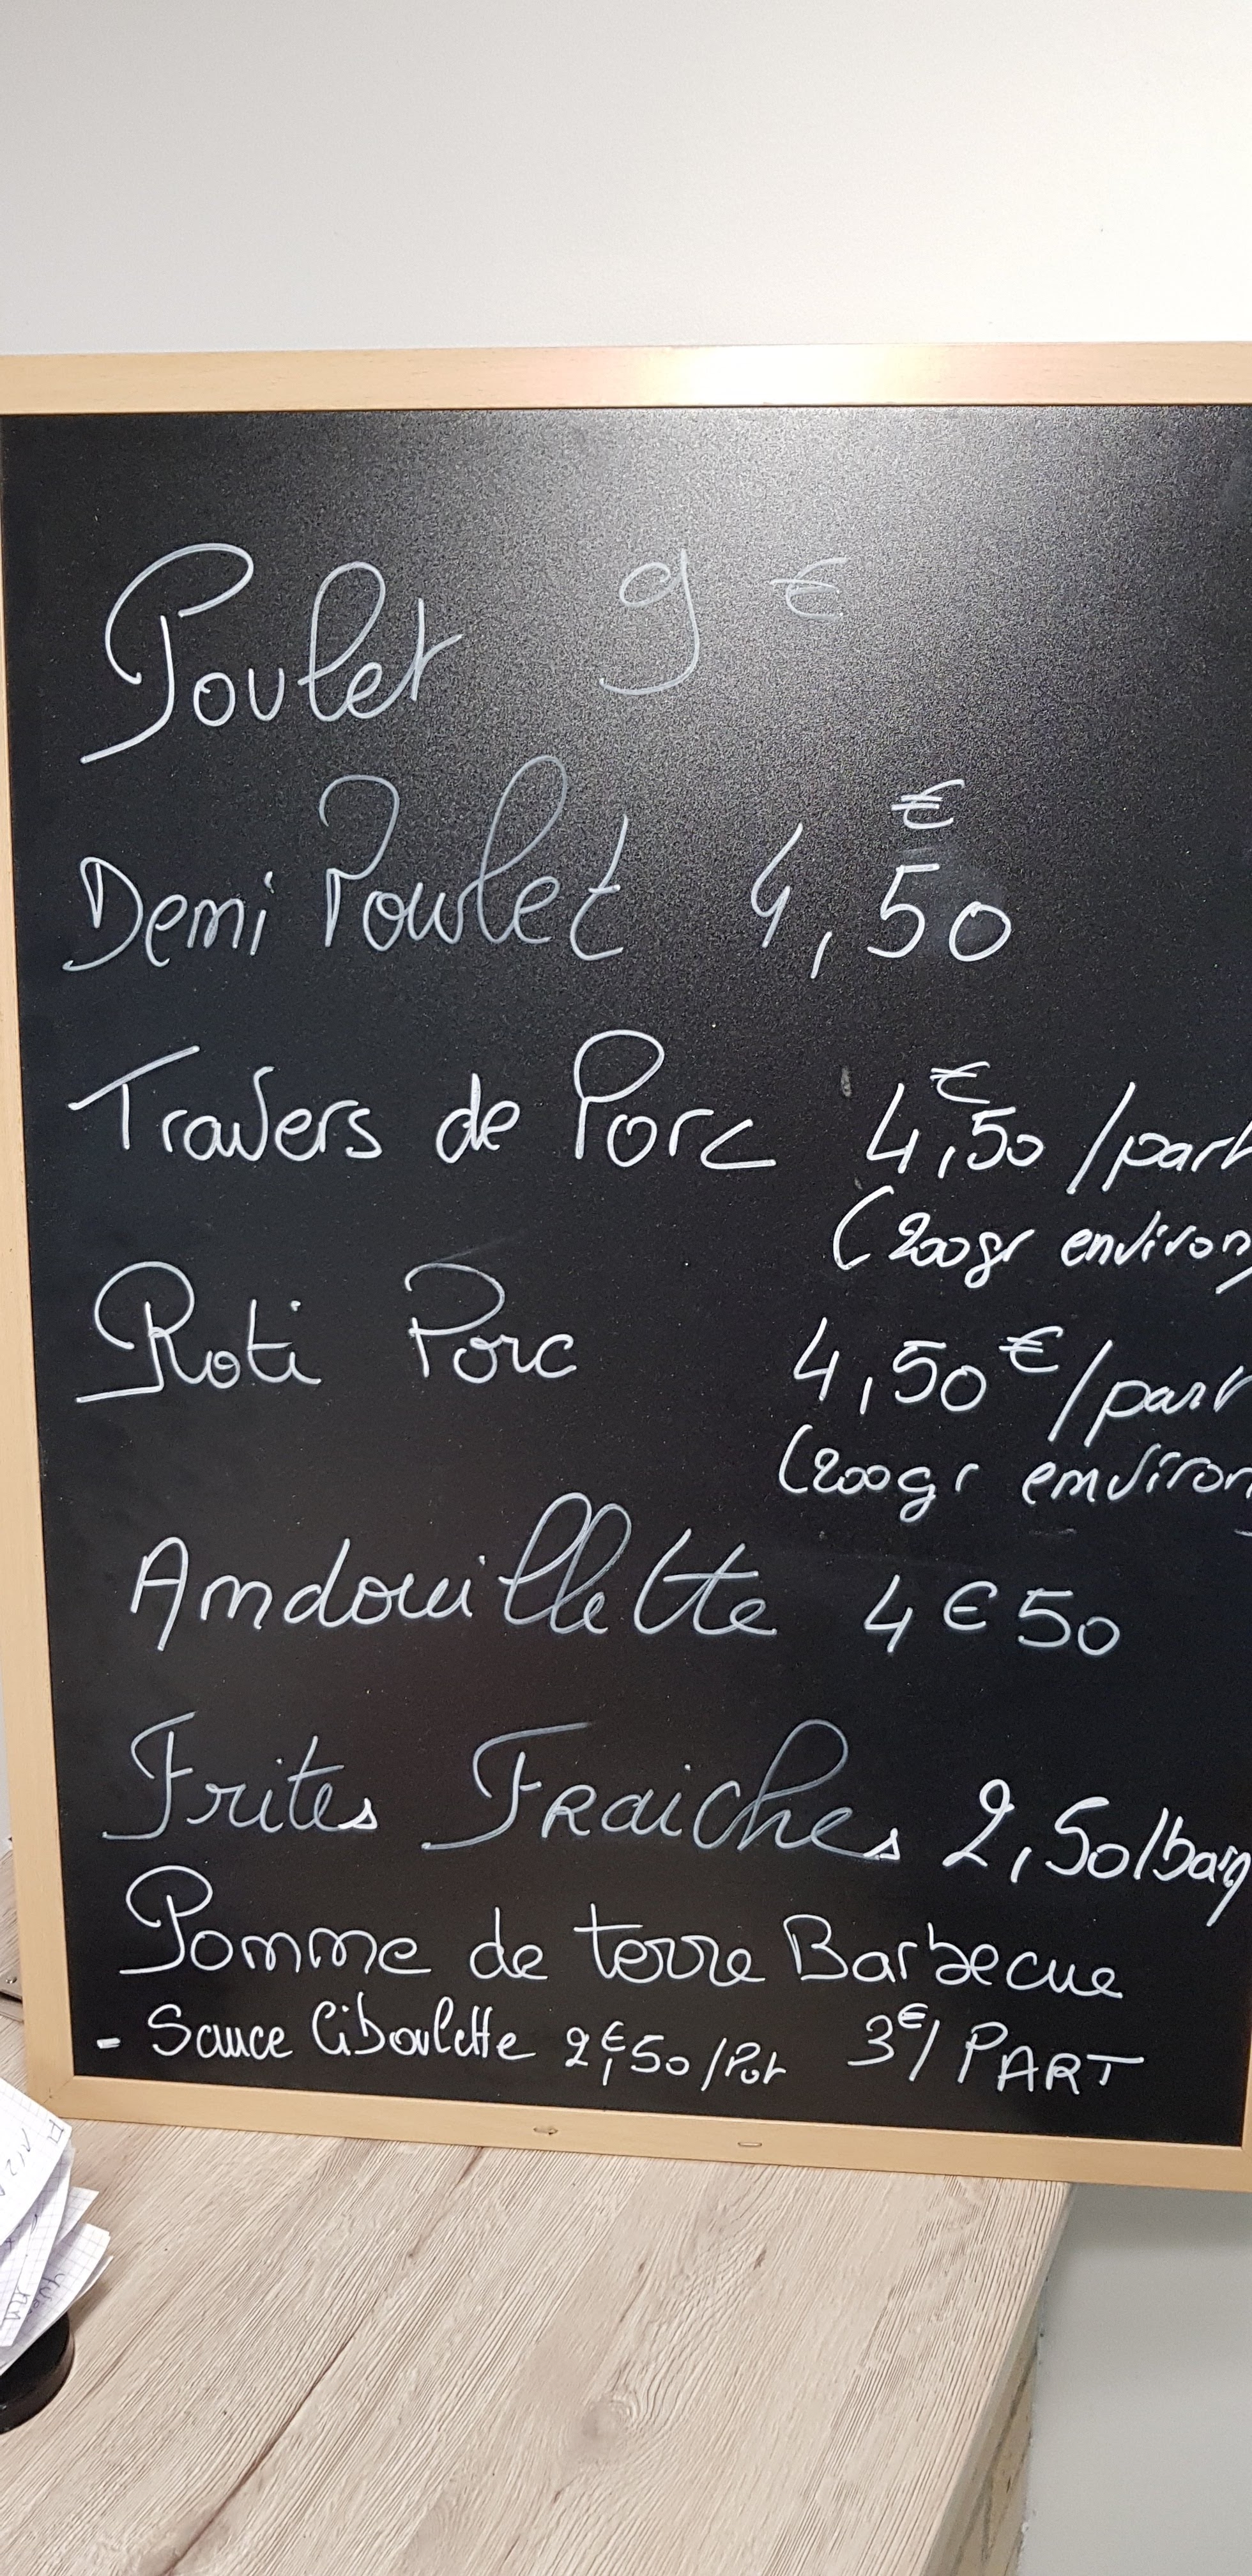 Poulet 9 €
Demi Poulet 4,50 €
Travers de Porc 4,50 € /part
(200gr environ)
Roti Porc 4,50 € /part
(200gr environ
Andouillette 4 € 50
Frites Fraiches 2,50/barq
Pomme de terre Barbecue
- Sauce Ciboulette 2,50 € /Pot 3 € / PART